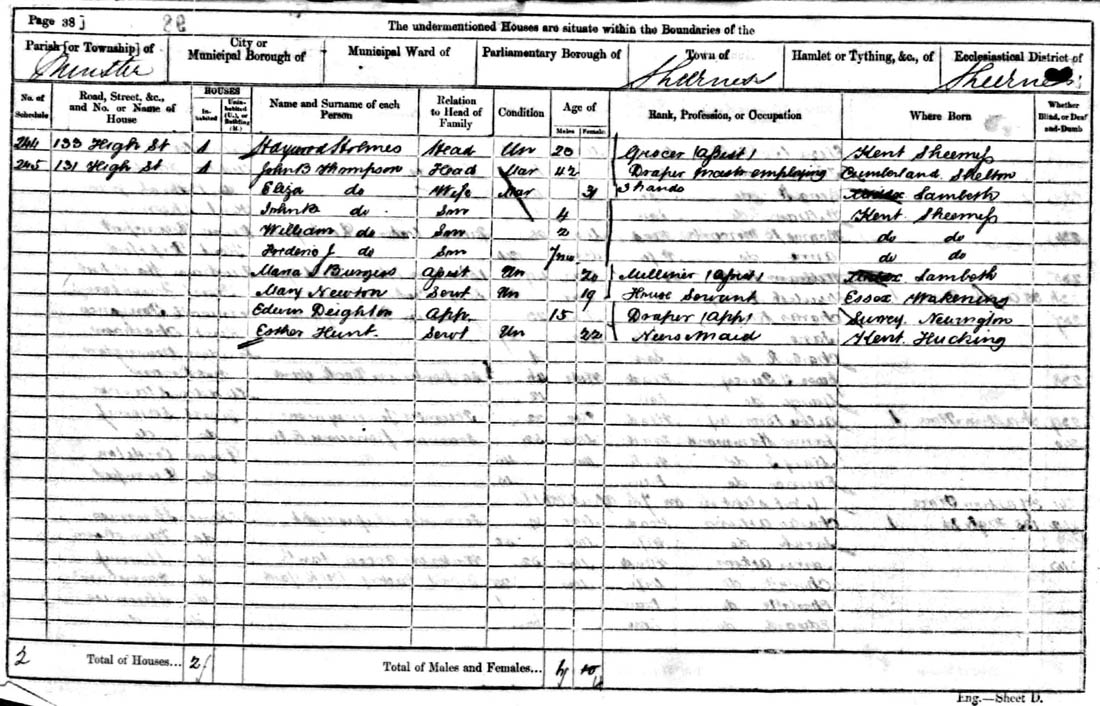 Page 38]
The undermentioned Houses are situate within the Boundaries of the
Parish [or Township] of
City or Municipal Borough of
Municipal Ward of
Parliamentary Borough of
Town of
Hamlet or Tything, &c., of
Ecclesiastical District of
Minster
Sheerness
Sheerness
No. of Schedule
Road, Street, &c., and No. or Name of House
HOUSES
Inhabited
Uninhabited (U.), or Building (B.)
Name and Surname of each Person
Relation to Head of Family
Condition
Age of
Males
Females
Rank, Profession, or Occupation
Where Born
Whether Blind, or Deaf-and-Dumb
244 133 High St 1 Haywood Holmes Head Un 20 Grocer (Assist) Kent Sheerness
245 131 High St 1 John B Thompson Head Mar 42 Draper Master employing Cumberland Skelton
Eliza do Wife Mar 31 3 hands Lambeth
John B do Son 4 Kent Sheerness
William do Son 2 do do
Frederic J do Son 7mo do do
Maria S Burgess Assist Un 20 Milliner (Assist) Lambeth
Mary Newton Servt Un 19 House Servant Essex Wakering
Edwin Deighton App. 15 Draper (App) Surrey Newington
Esther Hunt Servt Un 22 Nurse Maid Kent Hucking
2 Total of Houses... 2
Total of Males and Females...
Eng.—Sheet D.